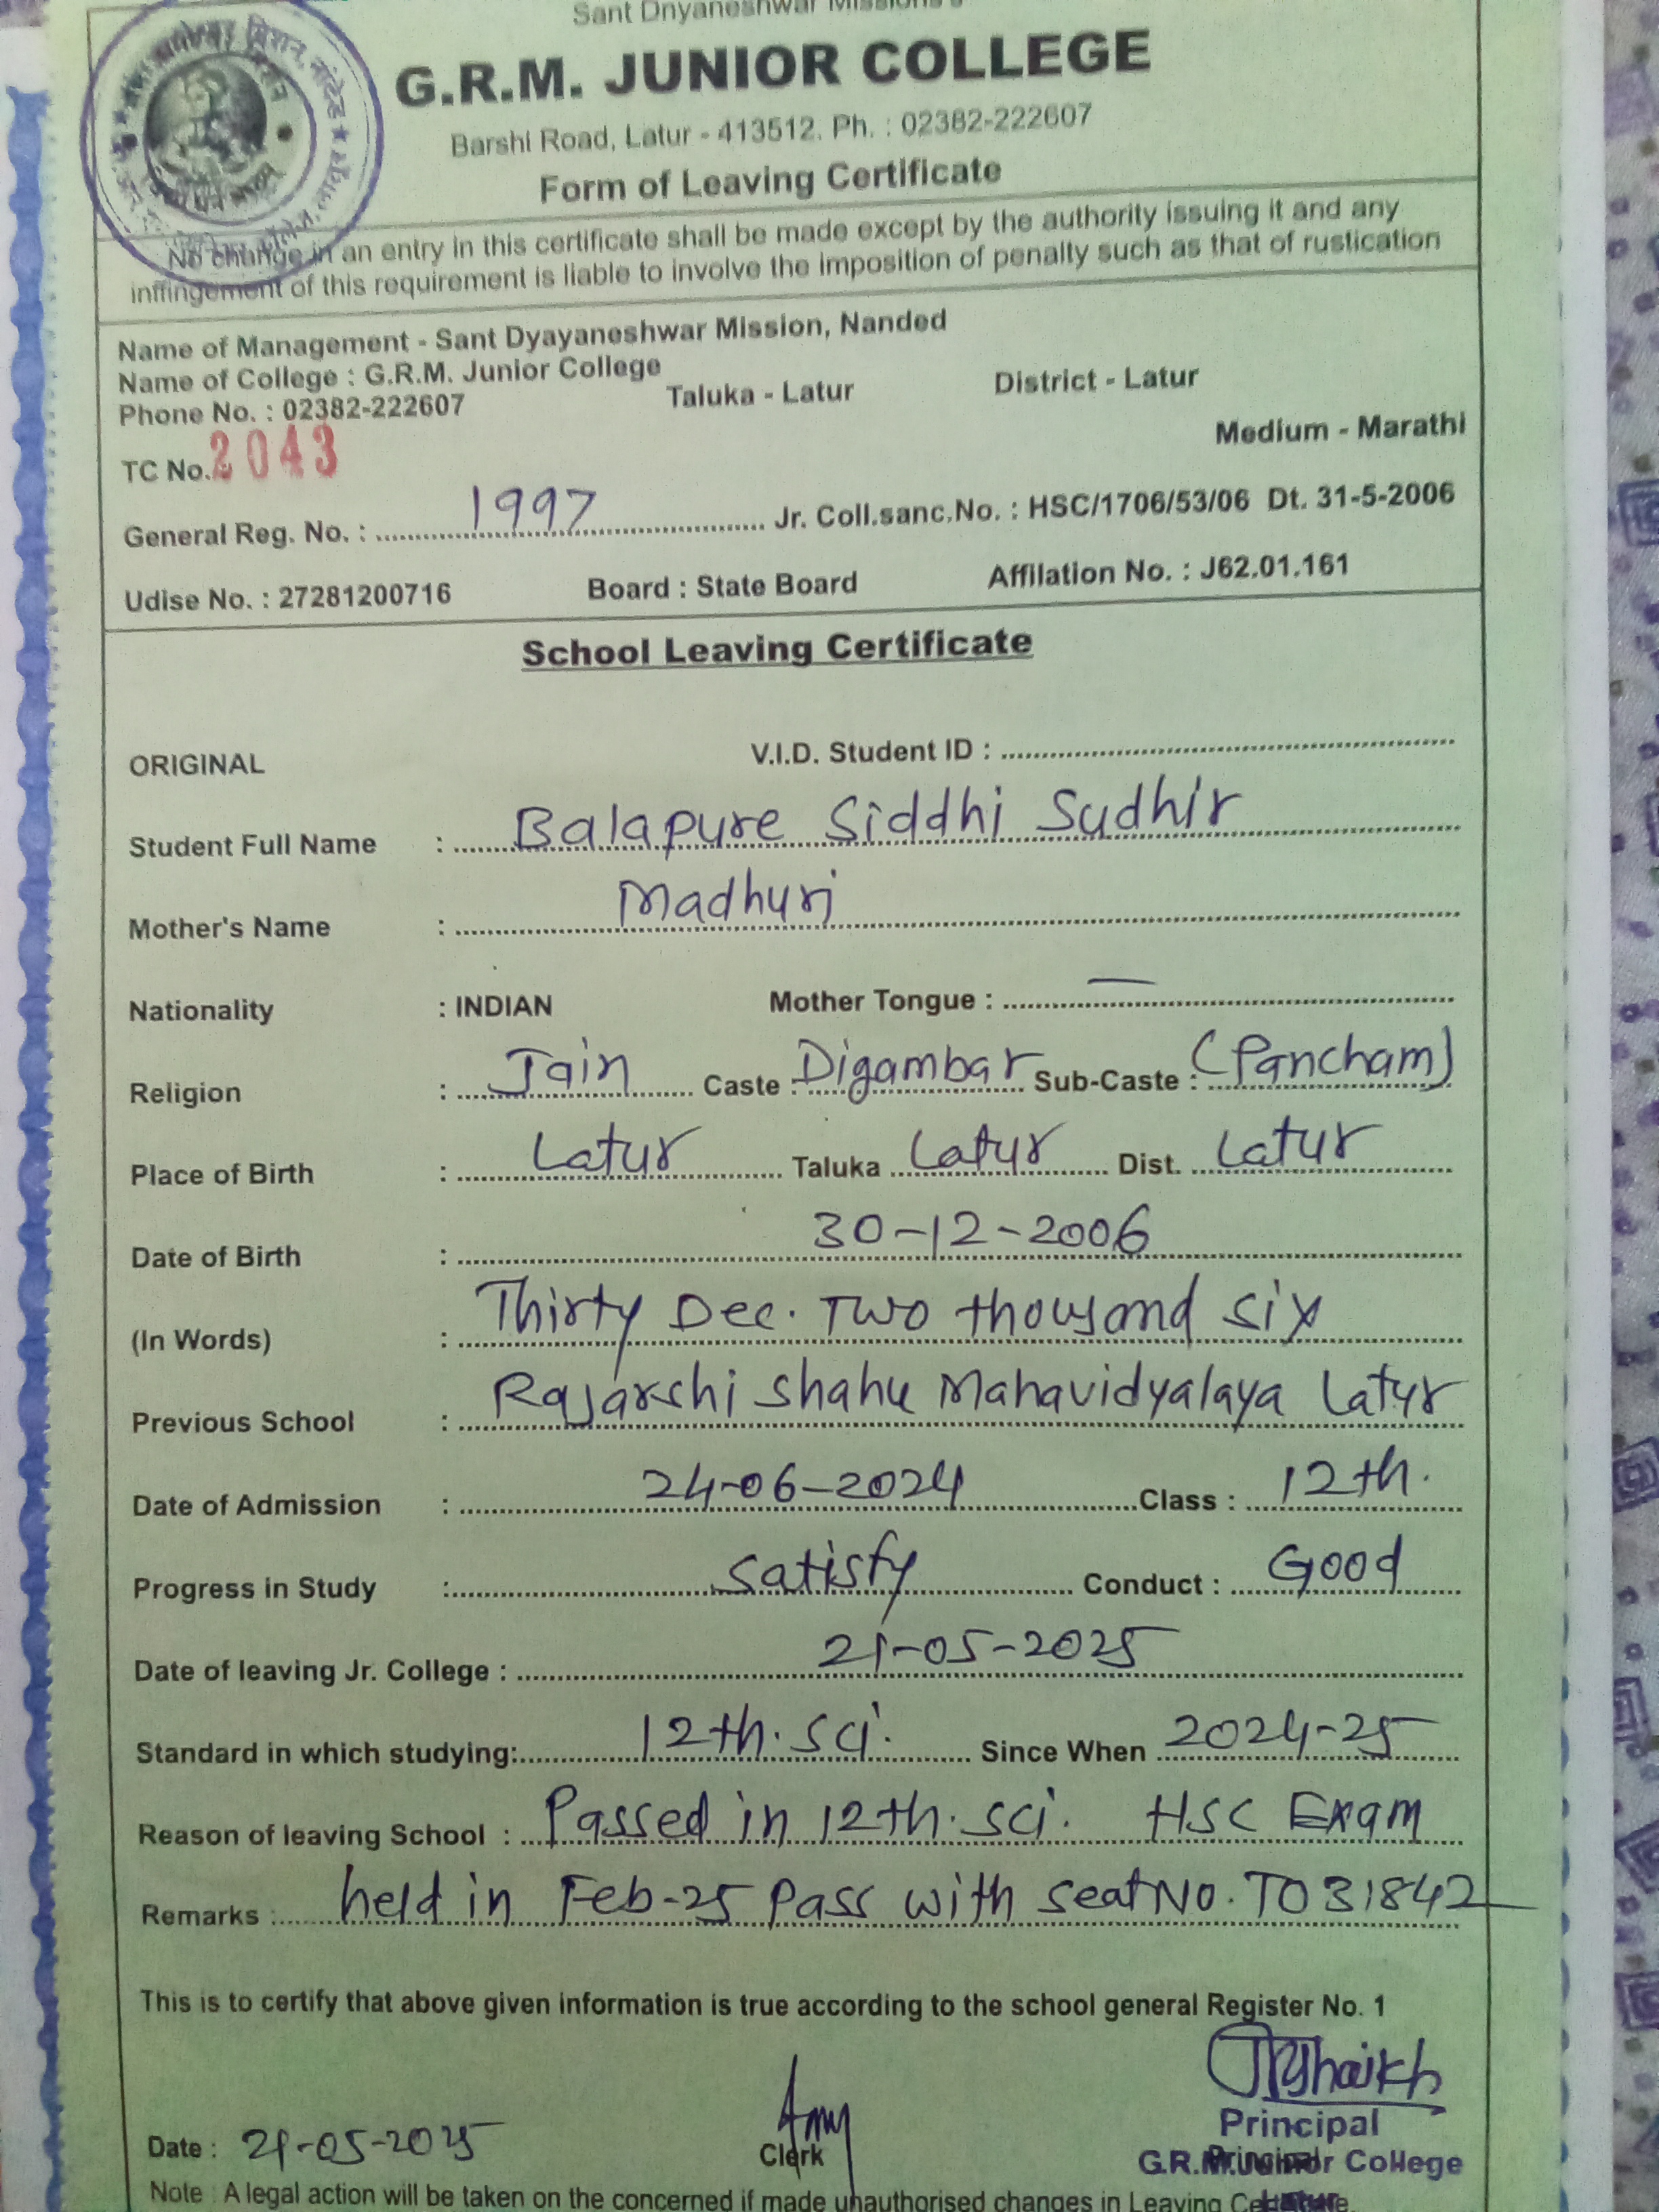 Sant Dnyaneshwar Mission's
G.R.M. JUNIOR COLLEGE
Barshi Road, Latur - 413512. Ph. : 02382-222607
Form of Leaving Certificate
No change in an entry in this certificate shall be made except by the authority issuing it and any
inffingement of this requirement is liable to involve the imposition of penalty such as that of rustication
Name of Management - Sant Dyayaneshwar Mission, Nanded
Name of College : G.R.M. Junior College
Phone No. : 02382-222607 Taluka - Latur District - Latur
Medium - Marathi
TC No. 2043
General Reg. No. : 1997 Jr. Coll.sanc.No. : HSC/1706/53/06 Dt. 31-5-2006
Udise No. : 27281200716 Board : State Board Affilation No. : J62.01.161
School Leaving Certificate
ORIGINAL V.I.D. Student ID :
Student Full Name : Balapure Siddhi Sudhir
Mother's Name : Madhuri
Nationality : INDIAN Mother Tongue : —
Religion : Jain Caste : Digambar Sub-Caste : (Pancham)
Place of Birth : Latur Taluka Latur Dist. Latur
Date of Birth : 30-12-2006
(In Words) : Thirty Dec. Two thousand six
Previous School : Rajarshi Shahu Mahavidyalaya Latur
Date of Admission : 24-06-2024 Class : 12th.
Progress in Study : Satisfy Conduct : Good
Date of leaving Jr. College : 21-05-2025
Standard in which studying: 12th. Sci. Since When 2024-25
Reason of leaving School : Passed in 12th. Sci. HSC Exam
Remarks : held in Feb-25 Pass with seat No. T031842
This is to certify that above given information is true according to the school general Register No. 1
Principal
Date : 21-05-2025 Clerk Principal
G.R.M. Junior College
Latur
Note : A legal action will be taken on the concerned if made unauthorised changes in Leaving Certificate.